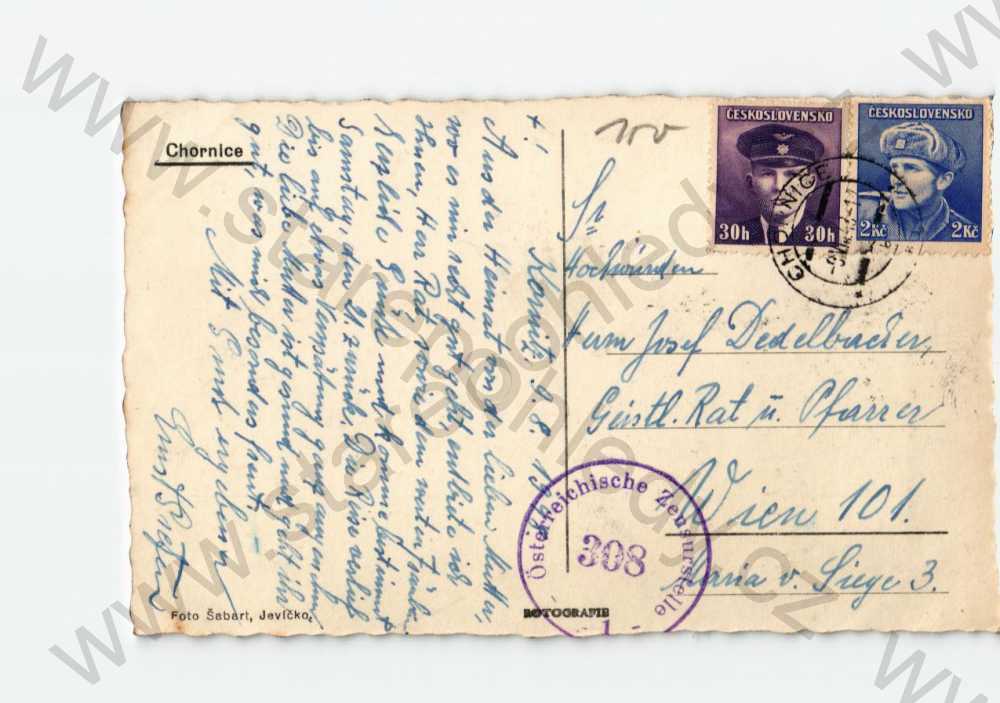 Chornice
+
Kornitz, 9. 8. 19
Aus der Heimat, von der lieben Mutter,
wo es mir recht gut geht, entbiete ich
Ihnen, Herr Rat, sowie den
herzliche Grüße und komme bestimmt
Samstag, den 21. zurück. Die Reise verlief
bis auf etwas Verspätung ganz angenehm.
Die liebe Mutter ist gesund und geht ihr
gut, was mich besonders freut.
Mit Gruß ergebener
Foto Šabart, Jevíčko.
ROTOGRAFIE
150
ČESKOSLOVENSKO
30h 30h
ČESKOSLOVENSKO
2Kč 2Kč
CHORNICE
Sr
Hochwürden
Herrn Josef Dedelbacher,
Geistl. Rat u. Pfarrer
Wien 101.
Maria v. Siege 3.
Österreichische Zensurstelle
308
1
www.starepohledy.cz